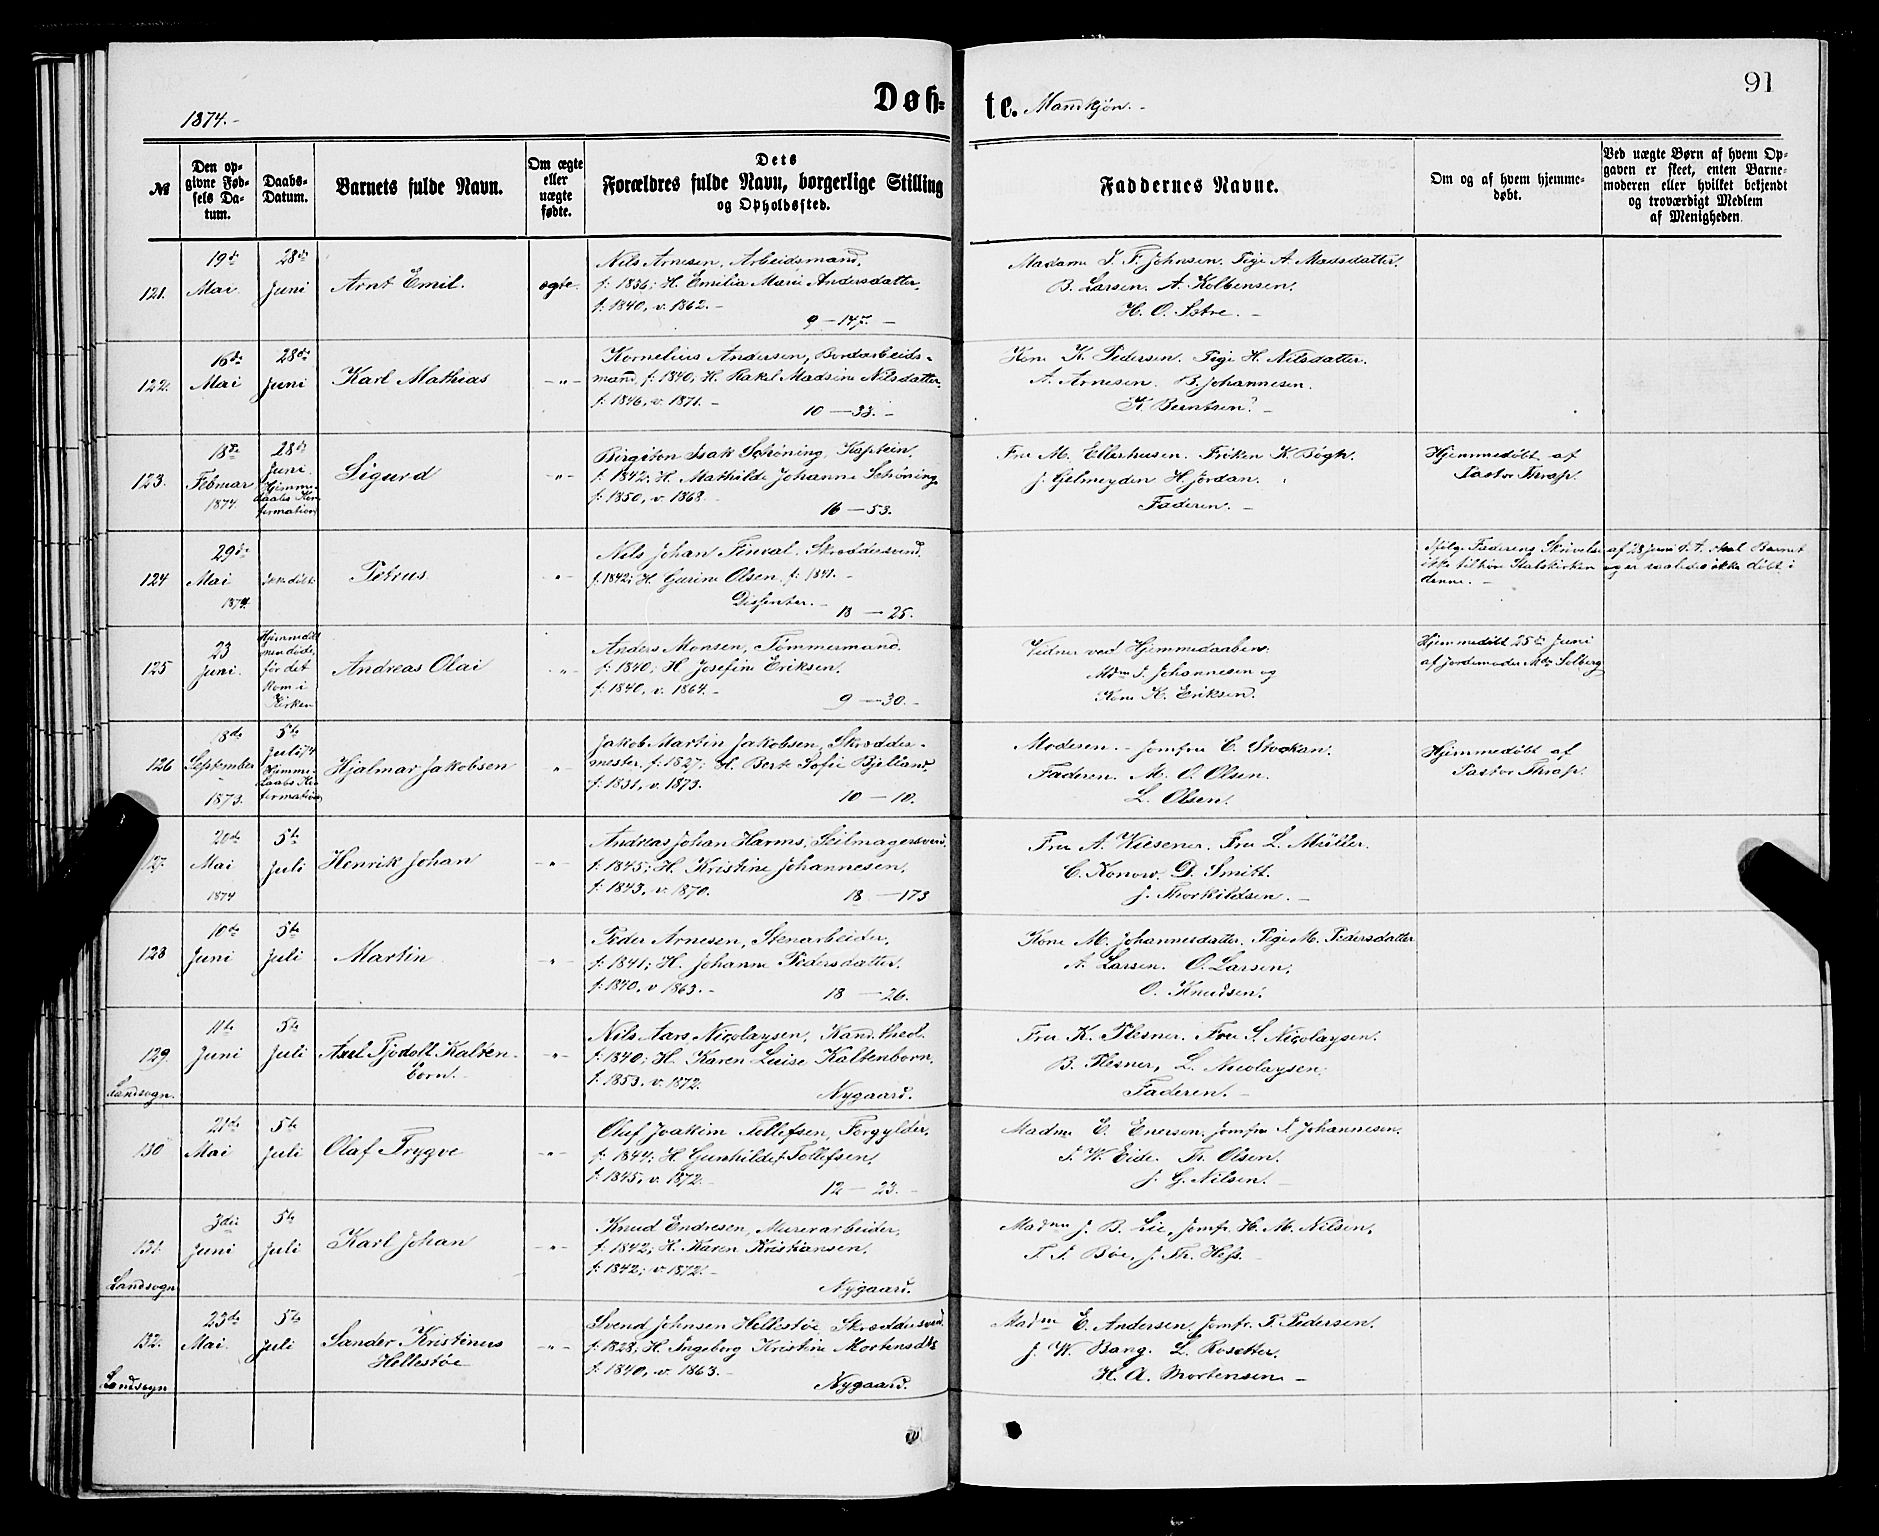 91
1874.-
Døb=
te. Mandkjøn.-
№
Den op-
givne Fød-
sels Da-
tum.
Daabs-
Datum.
Barnets fulde Navn.
Om ægte
eller
uægte
fødte.
Dets
Forældres fulde Navn, borgerlige Stilling
og Opholdssted.
Faddernes Navne.
Om og af hvem hjemme-
døbt.
Ved uægte Børn af hvem Op-
gaven er skeet, enten Barne-
moderen eller hvilket bekjendt
og troværdigt Medlem
af Menigheden.
121.
19de
Mai
28de
Juni
Arnt Emil.
ægte.
Nils Arnesen, Arbeidsmand,
f: 1836; H. Emilia Marie Andersdatter,
f: 1840, v. 1862. -
9 - 147. -
Madame J. F. Johnsen. Pige A. Madsdatter.
B. Larsen. A. Kolbensen.
H. O. Sætre. -
122.
16de
Mai
28de
Juni
Karl Mathias
-"-
Kornelius Andersen, Bordarbeids-
mand, f: 1840; H. Rakel Madsine Nilsdatter,
f: 1846, v. 1871. -
10 - 33. -
Kone K. Pedersen. Pige H. Nilsdatter.
A. Arnesen. B. Johannesen.
K. Berntsen. -
123.
18de
Februar
1874.
28de
Juni.
Hjemme-
daabs Kon-
firmation
Sigurd
-"-
Birgiton Isak Schøning, Kaptein,
f: 1842; H. Mathilde Johanne Schøning,
f: 1850, v. 1868. -
16 - 53.
Fru M. Ellerhusen. Frøken K. Bøgh.
J. Gelmeyden H. Jordan.
Faderen. -
Hjemmedøbt af
Pastor Thrap.
124
29de
Mai
1874.
Ikke døbt.
Petrus
-"-
Nils Johan Finval. Skræddersvend.
f: 1842; H. Gurine Olsen f: 1841. -
Dissenter. -
18 - 25.
Ifølge Faderens Skrivelse af 28 Juni d. A. skal Barnet
ikke tilhøre Statskirken og er saaledes ikke døbt i
denne. -
125
23
Juni.
Hjemmedøbt
men døde
før det
kom i
Kirken
Andreas Olai
-"-
Anders Monsen, Tømmermand.
f: 1840; H. Josefine Eriksen,
f: 1840, v. 1864. -
9 - 30. -
Vidner ved Hjemmedaaben:
Mdm J. Johannesen og
Kone K. Eriksen.
Hjemmedøbt 25de Juni
af Jordemoder Mdm Solberg
126
18de
September
1873.
5te
Juli 74
Hjemme-
daabs Kon-
firmation
Hjalmar Jakobsen
-"-
Jakob Martin Jakobsen, Skrædder-
mester, f: 1827; H. Berte Sofie Bjelland,
f: 1831, v. 1873.
10 - 10.
Moderen. - Jomfru C. Stockan.
Faderen. M. O. Olsen.
L. Olsen.
Hjemmedøbt af
Pastor Thrap.
127.
20de
Mai
1874
5te
Juli
Henrik Johan
-"-
Andreas Johan Harms, Seilmagersvend,
f: 1845; H. Kristine Johannesen,
f: 1843, v. 1870.
18 - 173
Fru A. Wiesener. Fru L. Müller.
C. Konow. D. Smitt.
J. Thorkildsen. -
128
10de
Juni
5te
Juli
Martin
-"-
Peder Arnesen, Stenarbeider,
f: 1841; H. Johanne Pedersdatter,
f: 1840, v 1863. -
18 - 26.
Kone M. Johannesdatter. Pige M. Pedersdatter
A. Larsen. O. Larsen.
O. Knudsen.
129.
Landsogn.
11te
Juni
5te
Juli
Axel Tjodolf Kalten-
born. -
-"-
Nils Aars Nicolaysen, Kand. theol.
f: 1840; H. Karen Luise Kaltenborn,
f. 1853. v. 1872.
Nygaard.
Fru K. Plesner. Fru S. Nicolaysen.
B. Plesner, L. Nicolaysen.
Faderen. -
130
21de
Mai
5te
Juli
Olaf Trygve
-"-
Oluf Joakim Tollefsen, Forgylder,
f: 1844; H. Gunhilde Tollefsen,
f: 1845, v. 1872. -
12 - 23. -
Madme E. Enersen. Jomfru A. Johannesen.
A. W. Eide. Th. Olsen.
J. G. Nilsen. -
131.
Landsogn
3die
Juni
5te
Juli
Karl Johan
-"-
Knud Endresen, Murerarbeider,
f: 1842; H. Karen Kristiansen,
f: 1842; v. 1872. -
Nygaard.
Madme J. B. Lie, Jomfr. H. M. Nilsen,
T. A. Bøe, J. Th. Hess. -
132.
Landsogn
23de
Mai.
5te
Juli
Sander Kristinus
Hellestøe
-"-
Svend Johnsen Hellestøe Skræddersvend
f: 1828; H. Ingeborg Kristine Mortensdtr
f: 1840, v. 1863. -
Nygaard.
Madme E. Andersen, Jomfr. P. Pedersen.
J. W. Bang. L. Rosetter.
H. A. Mortensen -